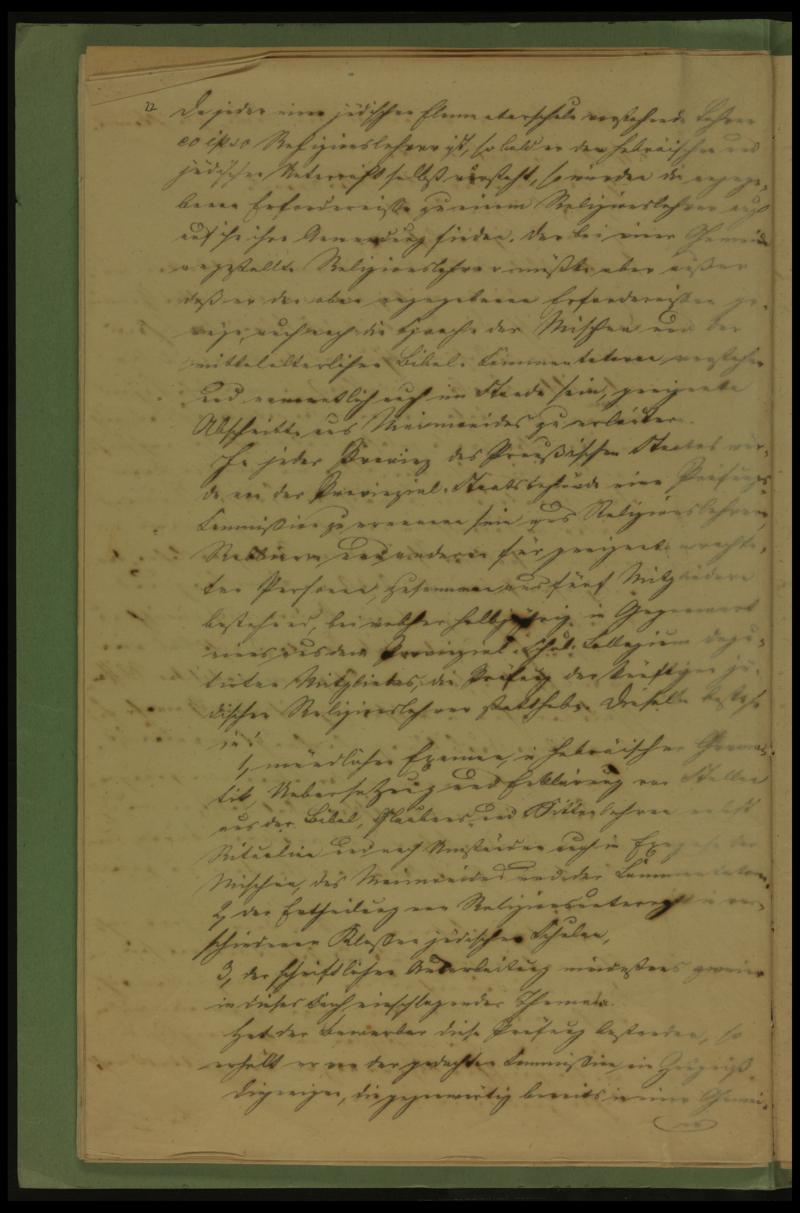 22
Da jeder einer jüdischen Elementarschule vorstehende Lehrer
eo ipso Religionslehrer ist, sobald er den hebräischen und
jüdischen Unterricht selbst versieht, so würden die angege-
benen Erfordernisse zu einem Religionslehrer auch
auf ihn ihre Anwendung finden. Der bei einer Gemeinde
angestellte Religionslehrer müßte aber außer
daß er den oben angegebenen Erfordernissen ge-
nüge, auch noch die Sprache der Mischna und der
mittelalterlichen Bibel-Commentatoren verstehen
und namentlich auch im Stande sein, geeignete
Abschnitte aus Maimonides zu erläutern.
In jeder Provinz des Preußischen Staates wür-
de von der Provinzial-Staatsbehörde eine Prüfungs-
Commission zu ernennen sein aus Religionslehrern,
Rabbinern und anderen für geeignet erachte-
ten Personen, zusammen aus fünf Mitgliedern
bestehend, bei welcher halbjährig in Gegenwart
eines aus dem Provinzial-Schul-Collegium depu-
tirten Mitgliedes, die Prüfung der künftigen jü-
dischen Religionslehrer statthabe. Dieselbe bestehe
in:
1, mündlichem Examen, in hebräischer Gramma-
tik, Uebersetzung und Erklärung von Stellen
aus der Bibel, Glaubens- und Sittenlehren nebst
Ritualien und nach Umständen auch in Exegese der
Mischna, des Maimonides und der Commentatoren.
2, der Ertheilung von Religionsunterricht in ver-
schiedenen Klassen jüdischer Schulen,
3, der schriftlichen Ausarbeitung mindestens zweier
in dieses Fach einschlagender Themata.
Hat der Bewerber diese Prüfung bestanden, so
erhält er von der gedachten Commission ein Zeugniß.
Diejenigen, die gegenwärtig bereits in einer Gemei-